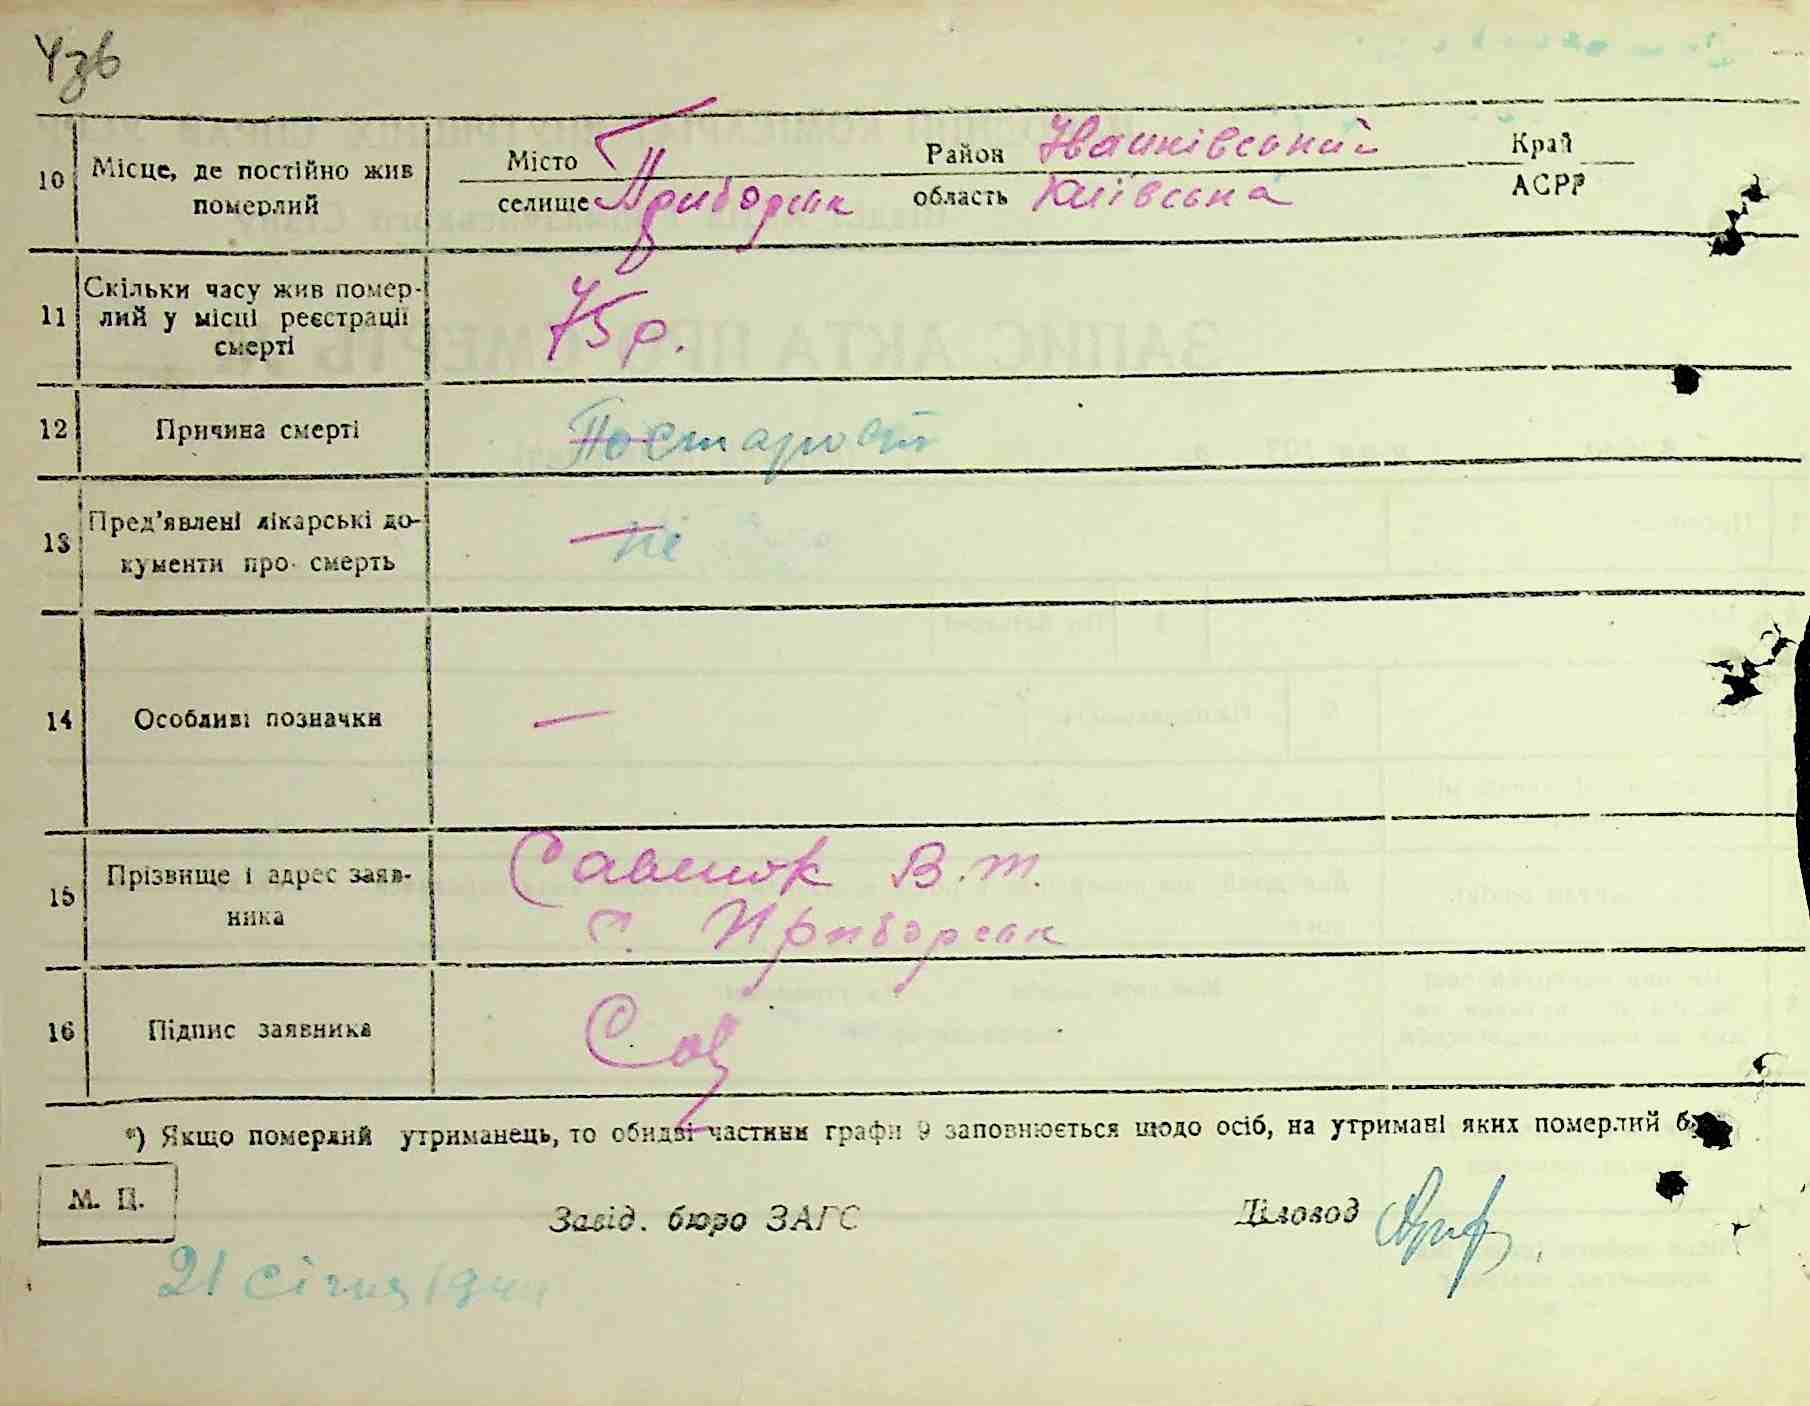 10 Місце, де постійно жив померлий
Місто
селище Приборськ
Район Іванківський
область Київська
Край
АСРР
11 Скільки часу жив помер-
лий у місці реєстрації
смерті
75 р.
12 Причина смерті
По старост
13 Пред’явлені лікарські до-
кументи про смерть
Ні
14 Особливі позначки
—
15 Прізвище і адрес заяв-
ника
Савенок В. Т.
с. Приборськ
16 Підпис заявника
Сав
*) Якщо померлий утриманець, то обидві частини графи 9 заповнюється щодо осіб, на утримані яких померлий
М. П.
Завід. бюро ЗАГС
Діловод
21 січня